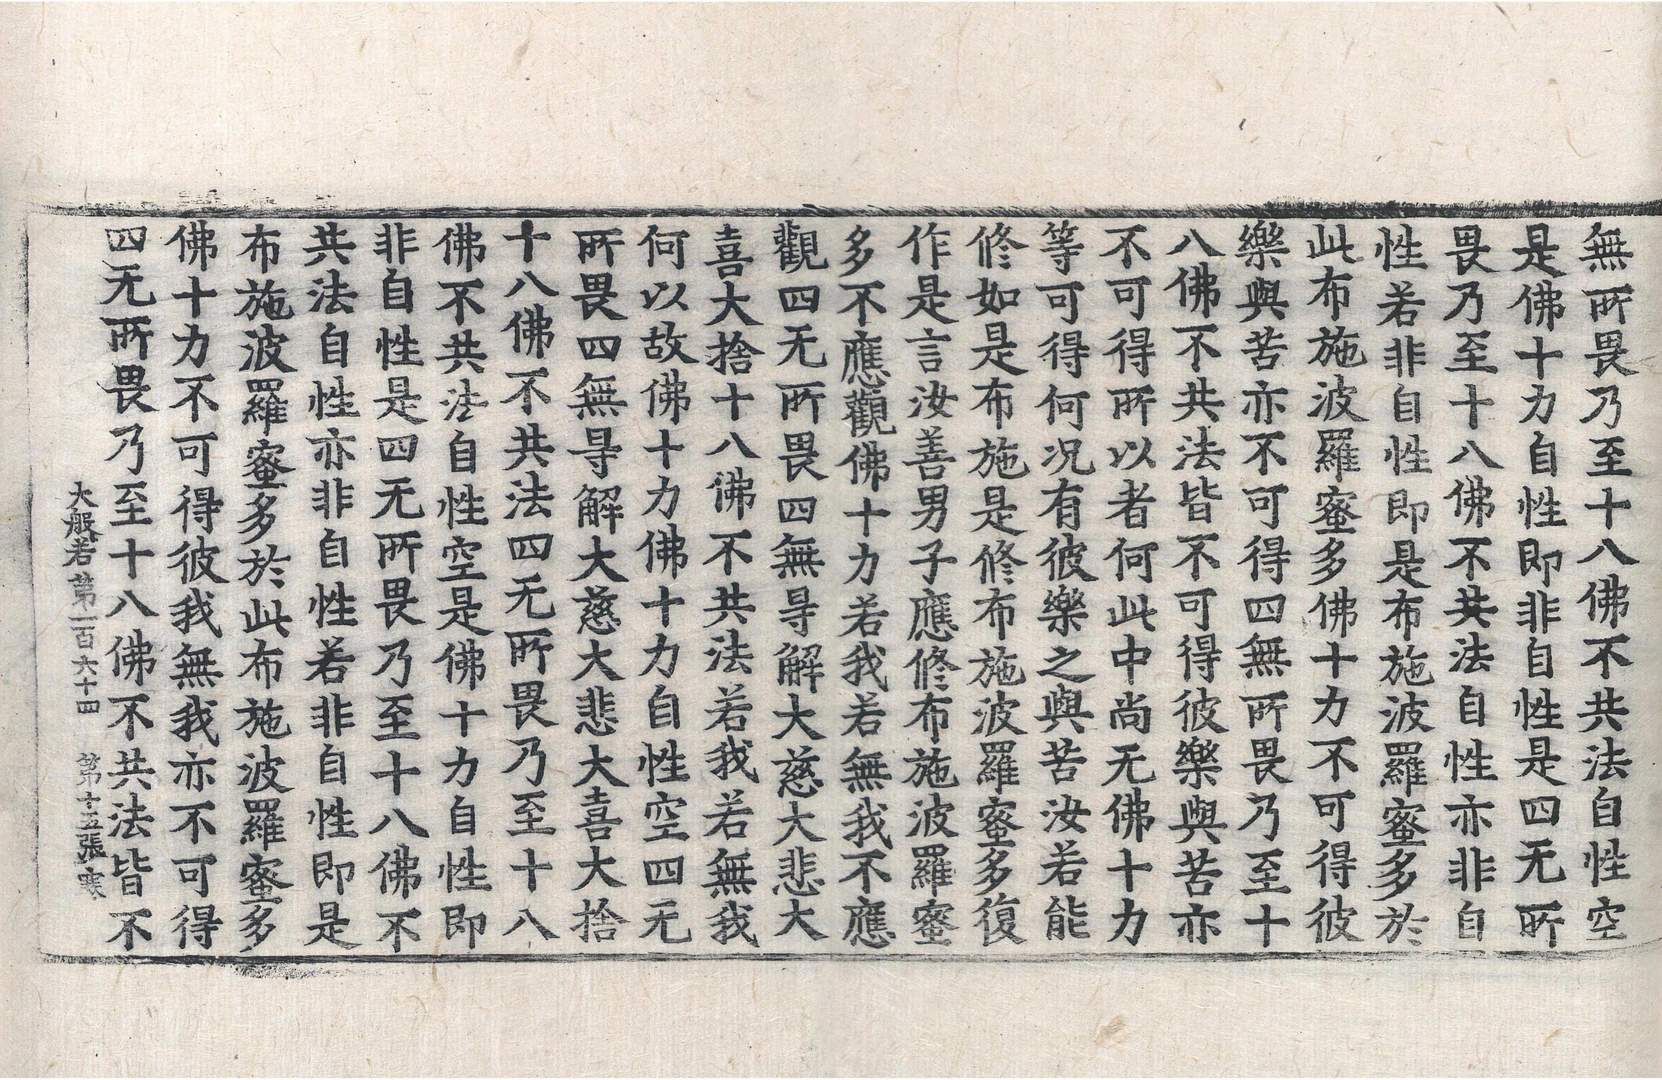 無所畏乃至十八佛不共法自性空
是佛十力自性即非自性是四无所
畏乃至十八佛不共法自性亦非自
性若非自性即是布施波羅蜜多於
此布施波羅蜜多佛十力不可得彼
樂與苦亦不可得四無所畏乃至十
八佛不共法皆不可得彼樂與苦亦
不可得所以者何此中尚无佛十力
等可得何况有彼樂之與苦汝若能
修如是布施是修布施波羅蜜多復
作是言汝善男子應修布施波羅蜜
多不應觀佛十力若我若無我不應
觀四无所畏四無㝵解大慈大悲大
喜大捨十八佛不共法若我若無我
何以故佛十力佛十力自性空四无
所畏四無㝵解大慈大悲大喜大捨
十八佛不共法四无所畏乃至十八
佛不共法自性空是佛十力自性即
非自性是四无所畏乃至十八佛不
共法自性亦非自性若非自性即是
布施波羅蜜多於此布施波羅蜜多
佛十力不可得彼我無我亦不可得
四无所畏乃至十八佛不共法皆不
大般若第一百六十四 第十五張 寒